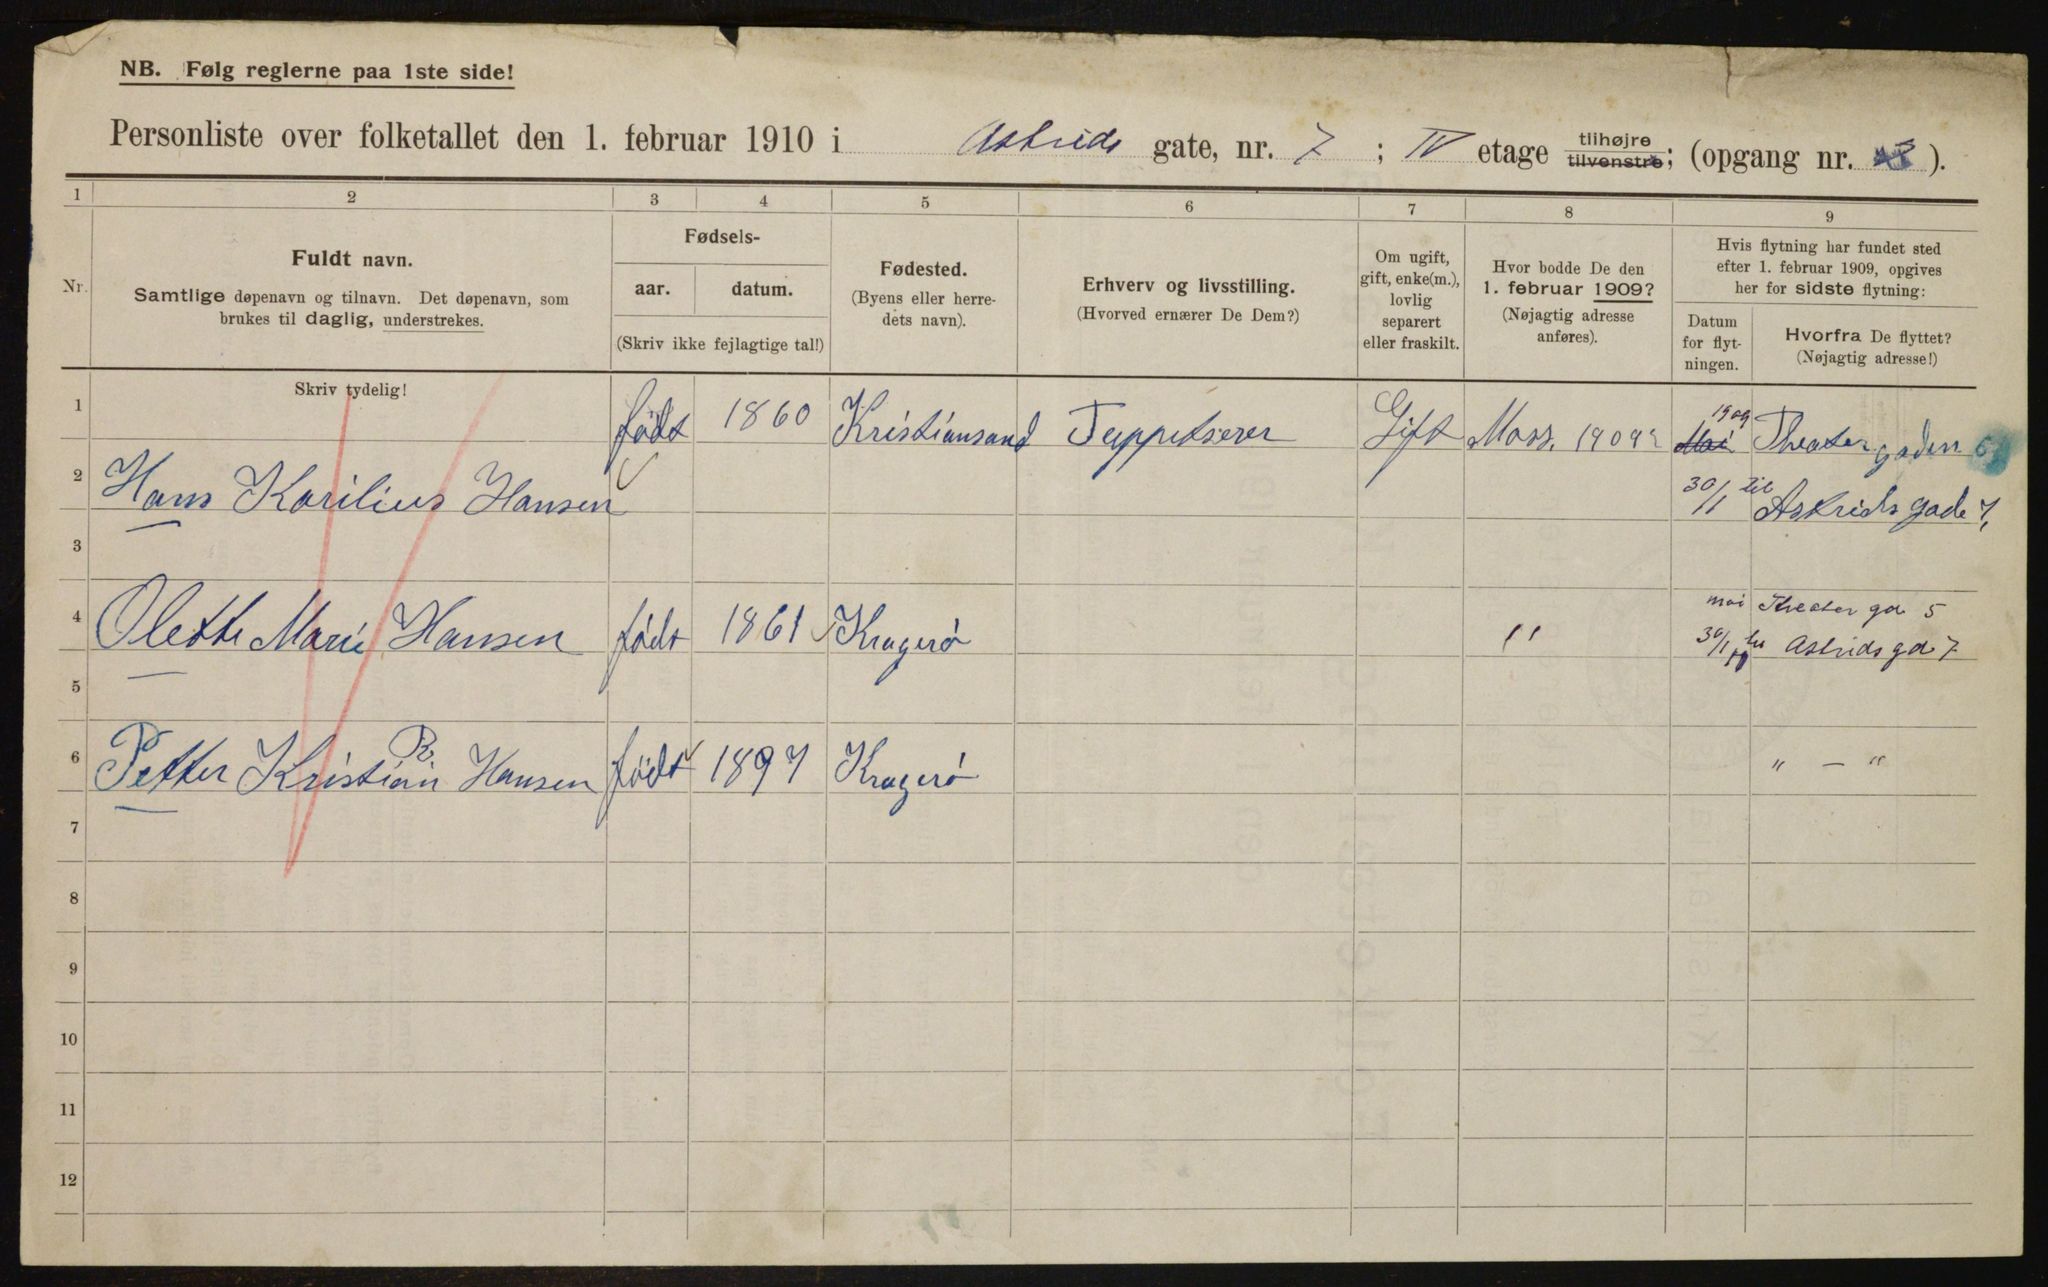 NB. Følg reglerne paa 1ste side!
Personliste over folketallet den 1. februar 1910 i Astrids gate, nr. 7 ; IV etage tilhøjre tilvenstre; (opgang nr. ).
1 2 3 4 5 6 7 8 9
Nr.
Fuldt navn.
Samtlige døpenavn og tilnavn. Det døpenavn, som
brukes til daglig, understrekes.
Skriv tydelig!
Fødsels-
aar. datum.
(Skriv ikke fejlagtige tal!)
Fødested.
(Byens eller herre-
dets navn).
Erhverv og livsstilling.
(Hvorved ernærer De Dem?)
Om ugift,
gift, enke(m.),
lovlig
separert
eller fraskilt.
Hvor bodde De den
1. februar 1909?
(Nøjagtig adresse
anføres).
Hvis flytning har fundet sted
efter 1. februar 1909, opgives
her for sidste flytning:
Datum
for flyt-
ningen.
Hvorfra De flyttet?
(Nøjagtig adresse!)
1 født 1860 Kristiansand Tappetserer Gift Moss. 1909 1909 Mai Theatergaden
2 Hans Karilius Hansen 30/1 til Astrids gade 7,
3
4 Olette Marie Hansen født 1861 Kragerø " mai Theater gd 5
30/1 10 til Astrids gd 7
5
6 Petter Kristian R. Hansen født 1897 Kragerø " — "
7
8
9
10
11
12